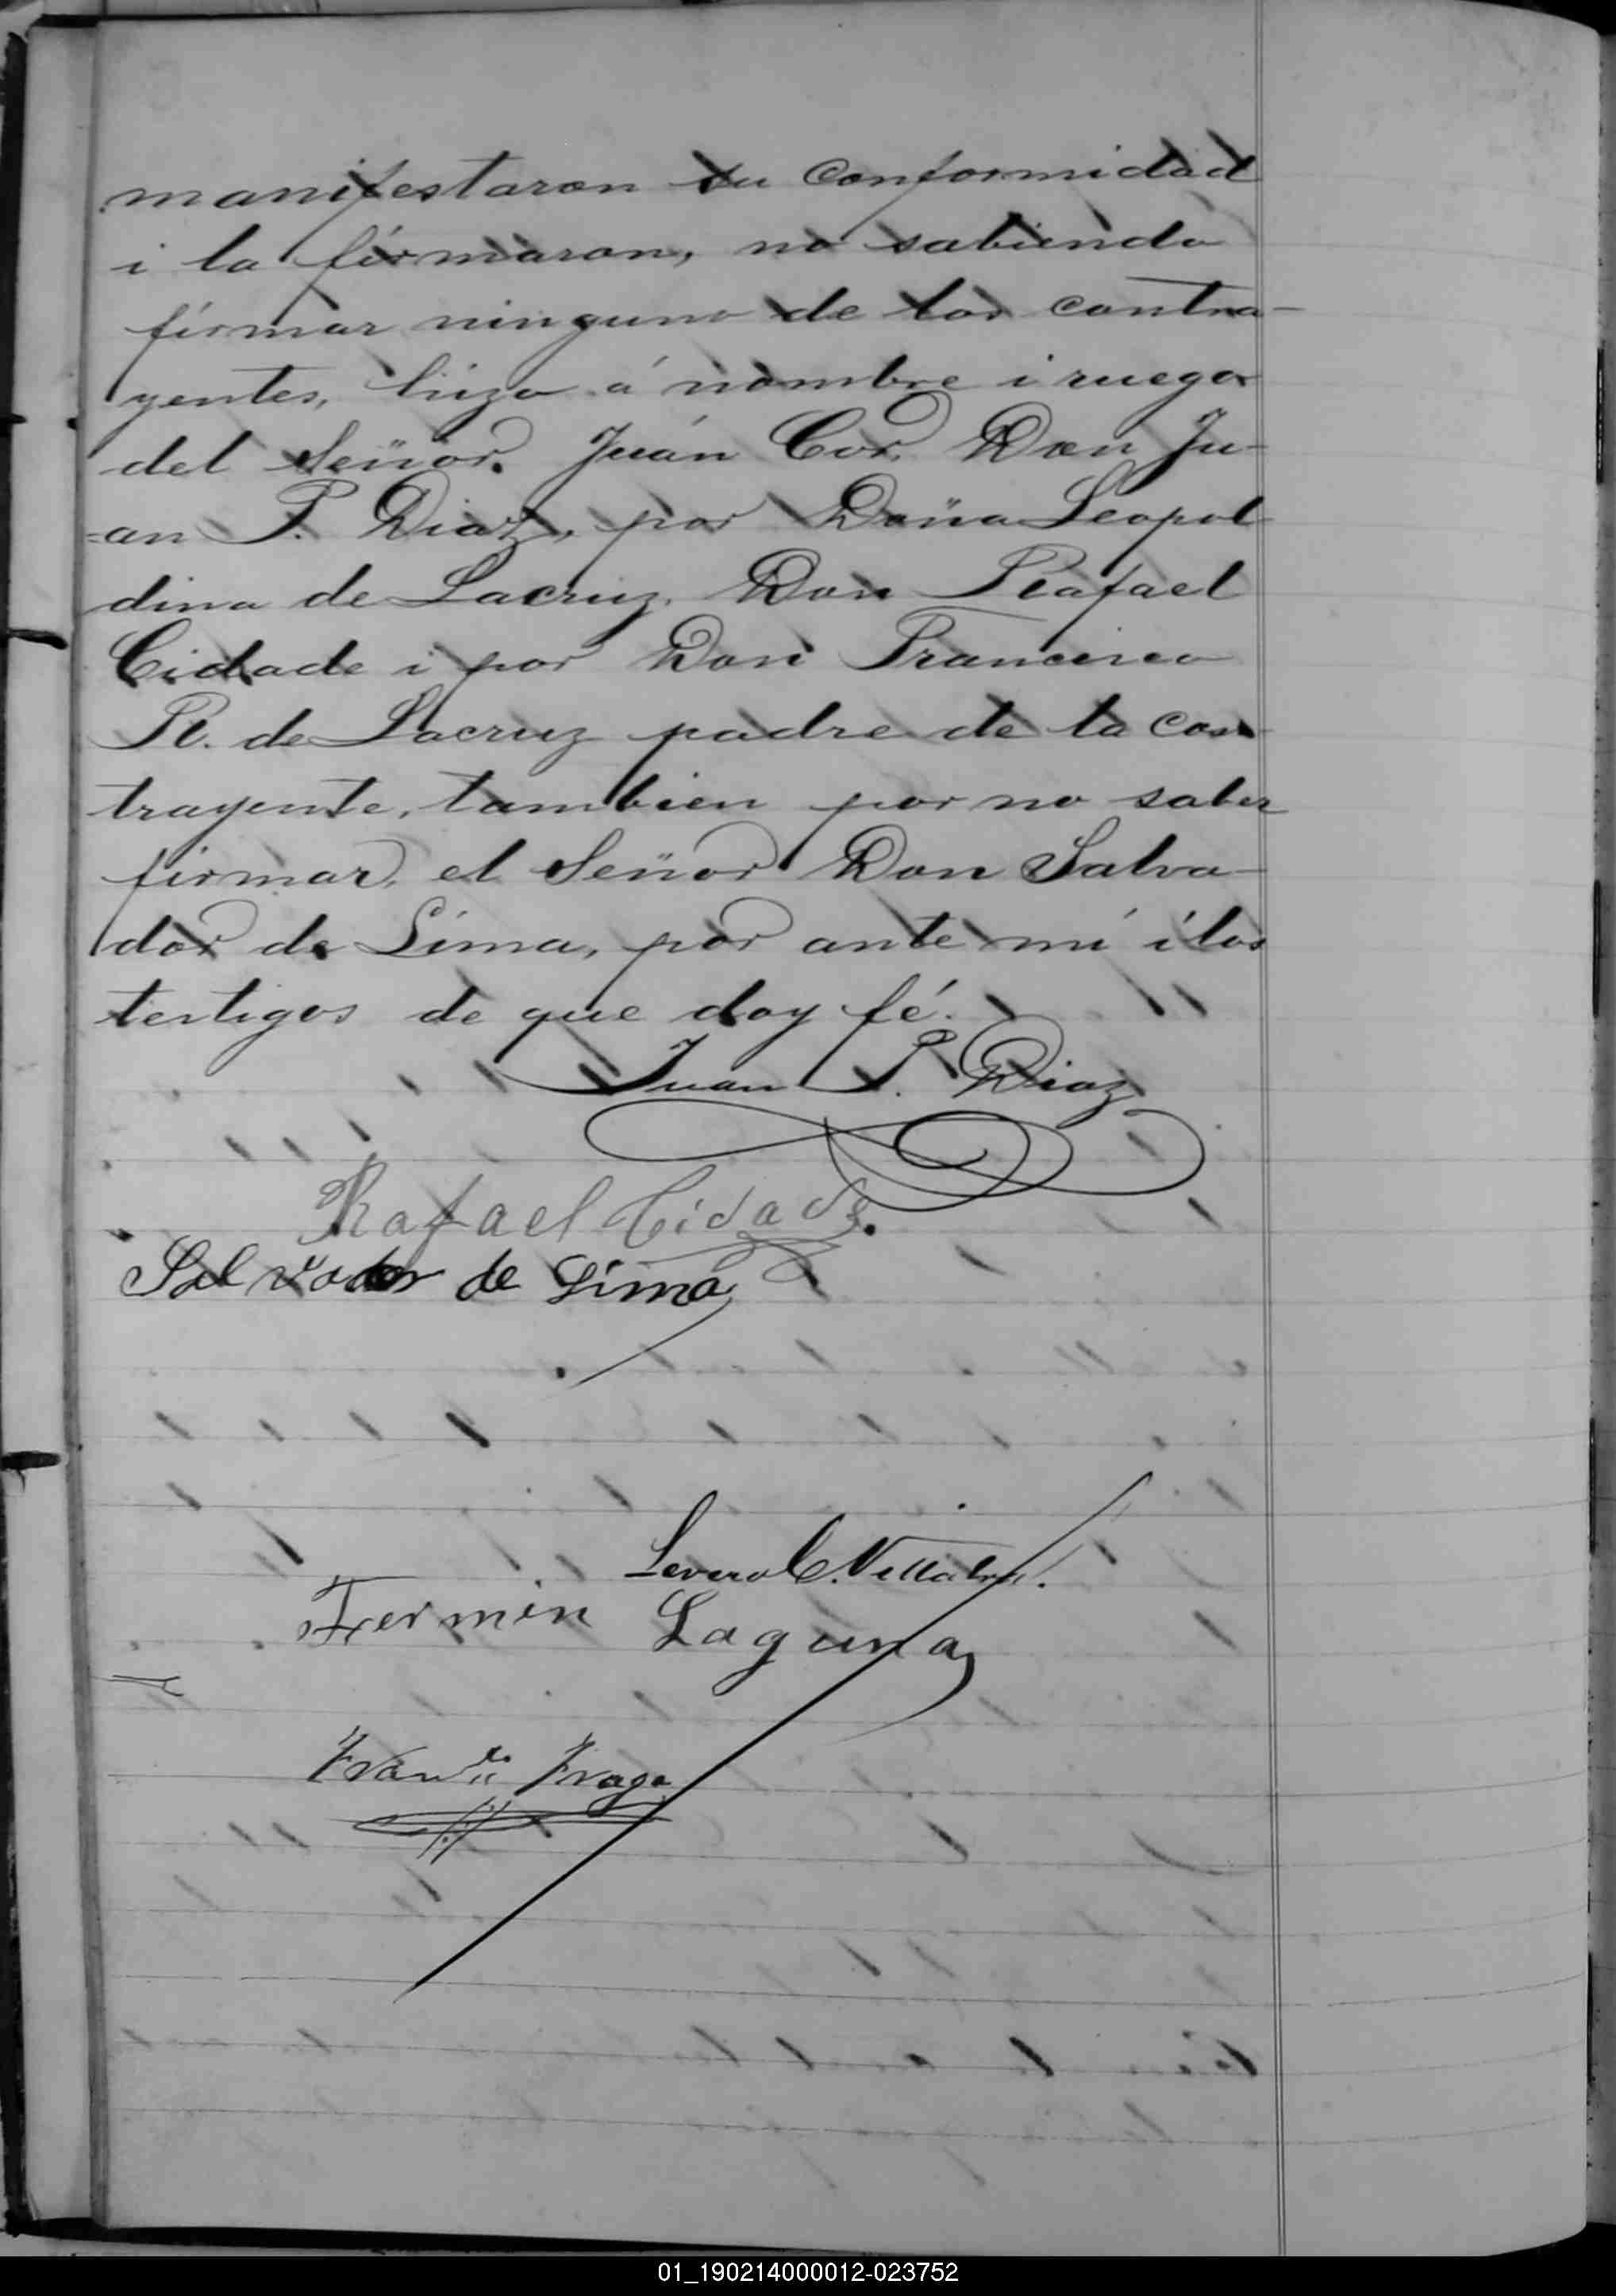 manifestaron su conformidad
i la firmaron, no sabiendo
firmar ninguno de los contra-
yentes, hizo á nombre i ruego
del Señor. Juán Cor. Don Ju-
-an P. Diaz, por Doña Leopol
dina de Lacruz. Don Rafael
Cidade i por Don Francisco
R. de Lacruz padre de la con
trayente, tambien por no saber
firmar, el Señor Don Salva-
dor de Lima, por ante mí i los
testigos de que doy fé.
Juan P. Diaz
Rafael Cidade.
Salvador de Lima
Severo C. Villalon.
Fermin Laguna
Franco Fraga
01_190214000012-023752